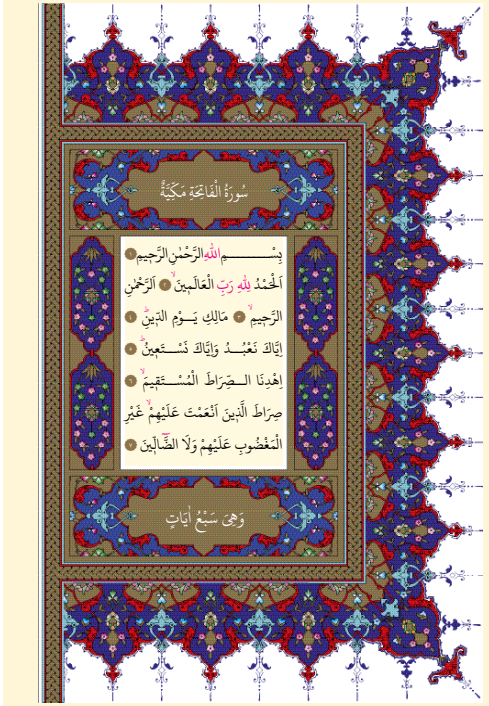 سُورَةُ الْفَاتِحَةِ مَكِّيَّةٌ
بِسْــــــــمِ اللّٰهِ الرَّحْمٰنِ الرَّحِيمِ ١
اَلْحَمْدُ لِلّٰهِ رَبِّ الْعَالَمِينَۙ ٢ اَلرَّحْمٰنِ
الرَّحِيمِۙ ٣ مَالِكِ يَــوْمِ الدِّينِۜ ٤
اِيَّاكَ نَعْبُــدُ وَاِيَّاكَ نَسْــتَعِينُۜ ٥
اِهْدِنَا الــصِّرَاطَ الْمُسْــتَقِيمَۙ ٦
صِرَاطَ الَّذِينَ اَنْعَمْتَ عَلَيْهِمْۙ غَيْرِ
الْمَغْضُوبِ عَلَيْهِمْ وَلَا الضَّٓالِّينَ ٧
وَهِيَ سَبْعُ اٰيَاتٍ